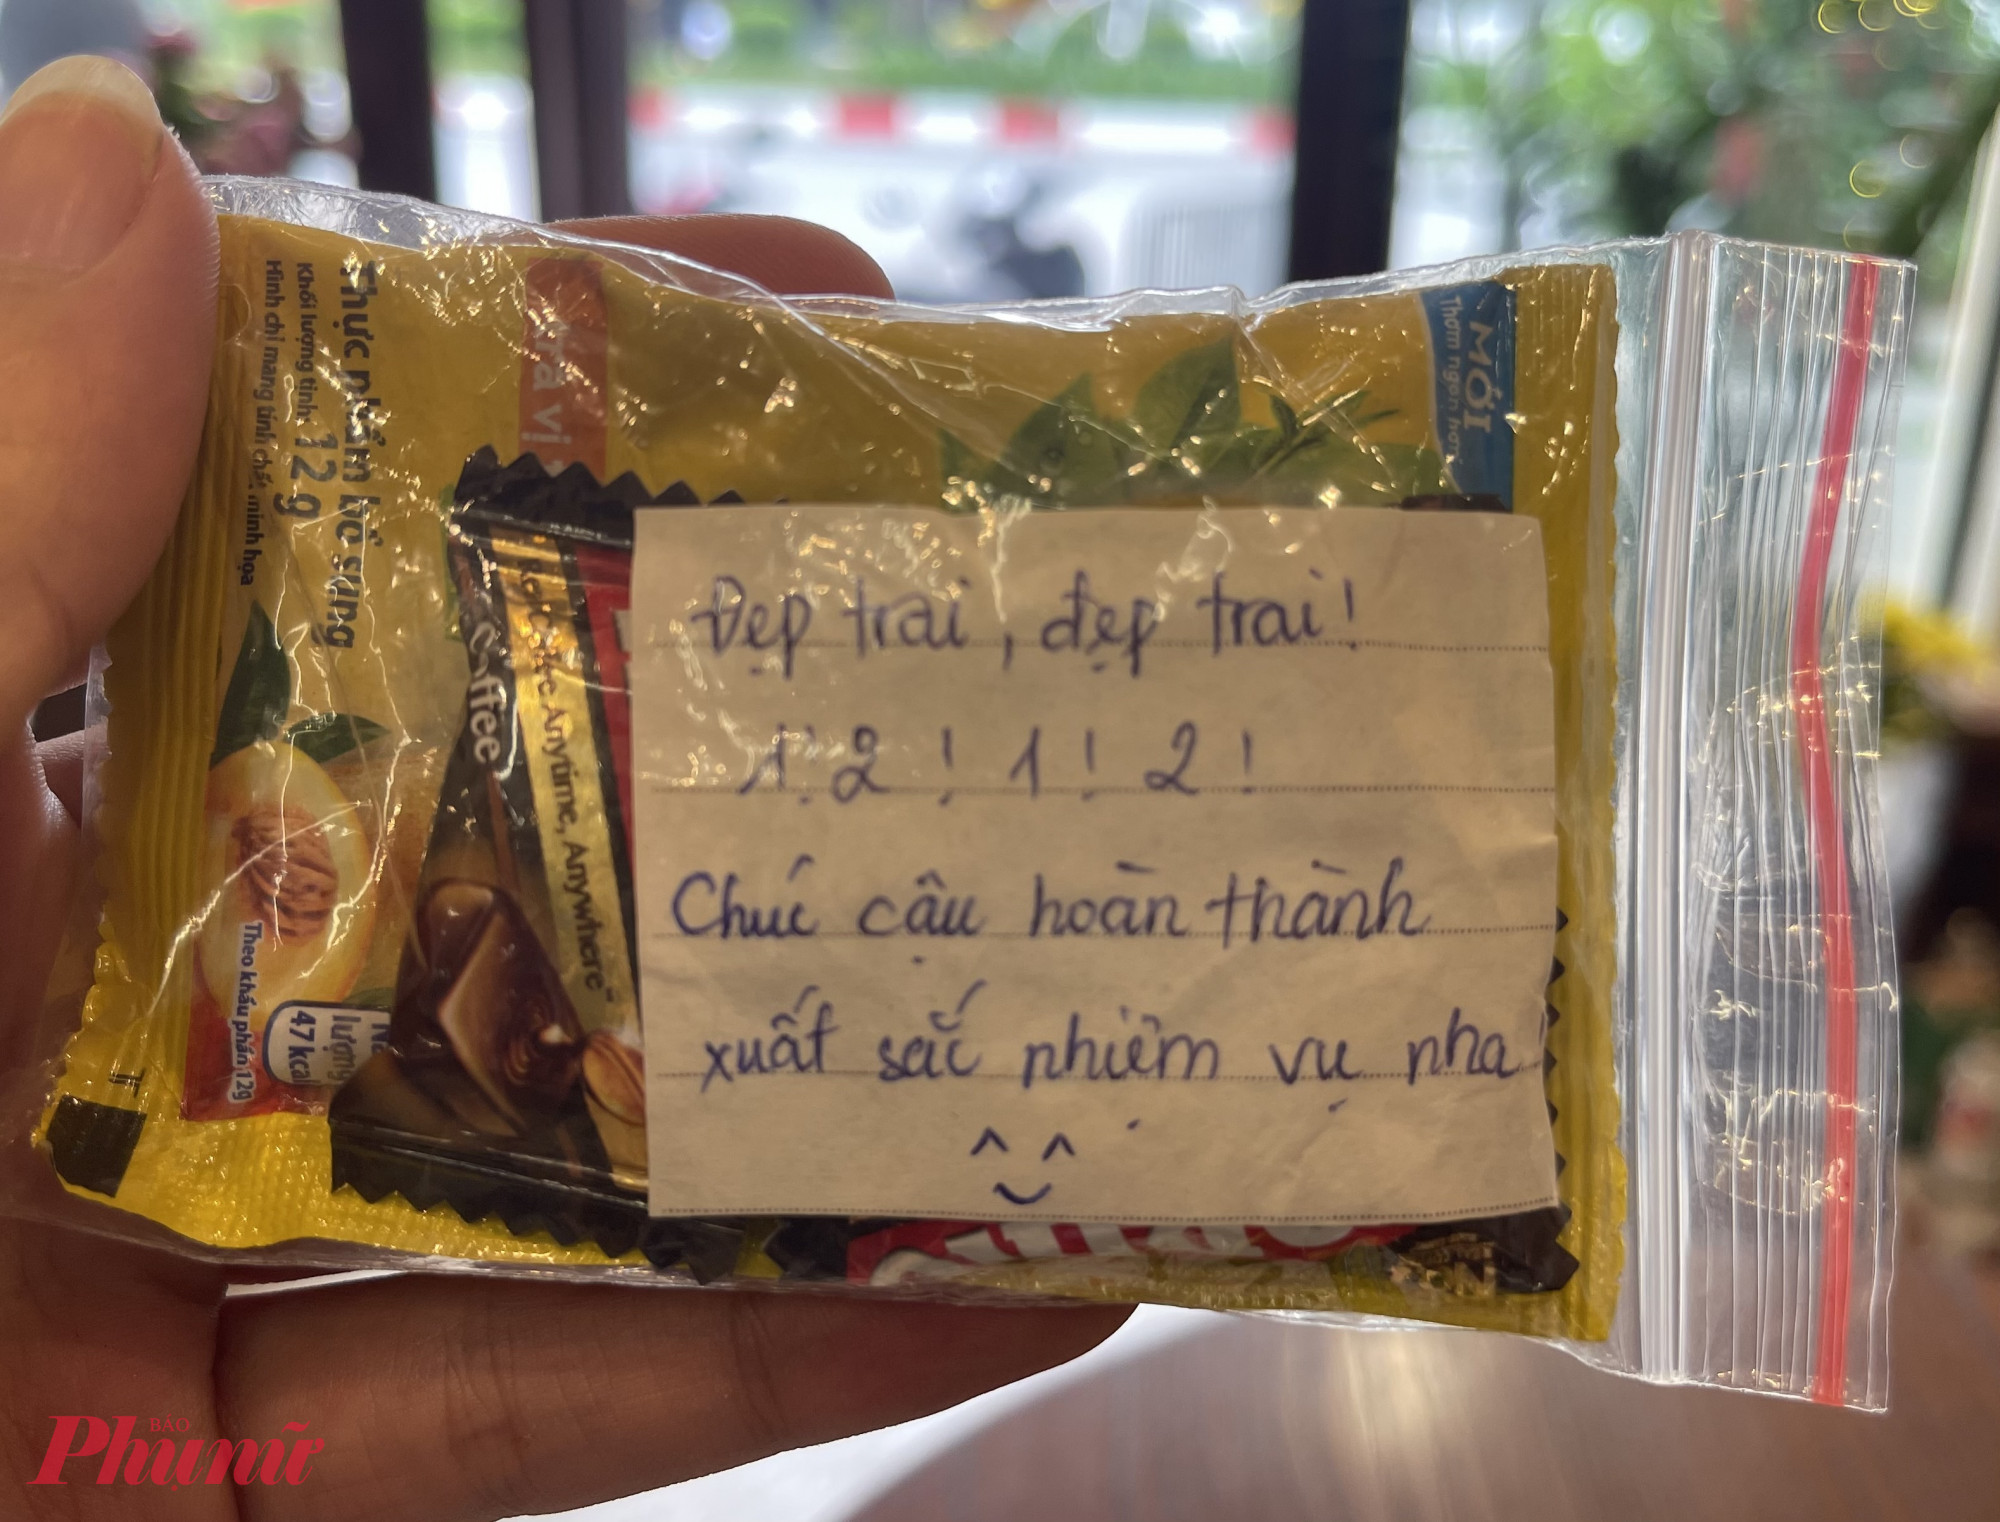 Đẹp trai, đẹp trai!
1! 2! 1! 2!
Chúc cậu hoàn thành
xuất sắc nhiệm vụ nha!
Thực phẩm bổ sung
Khối lượng tịnh: 12g
Hình chỉ mang tính chất minh họa
Trà vị
MỚI
Thơm ngon hơn
Coffee
Anytime, Anywhere
Theo khẩu phần 12g
lượng
47 kcal
BÁO
Phụ nữ